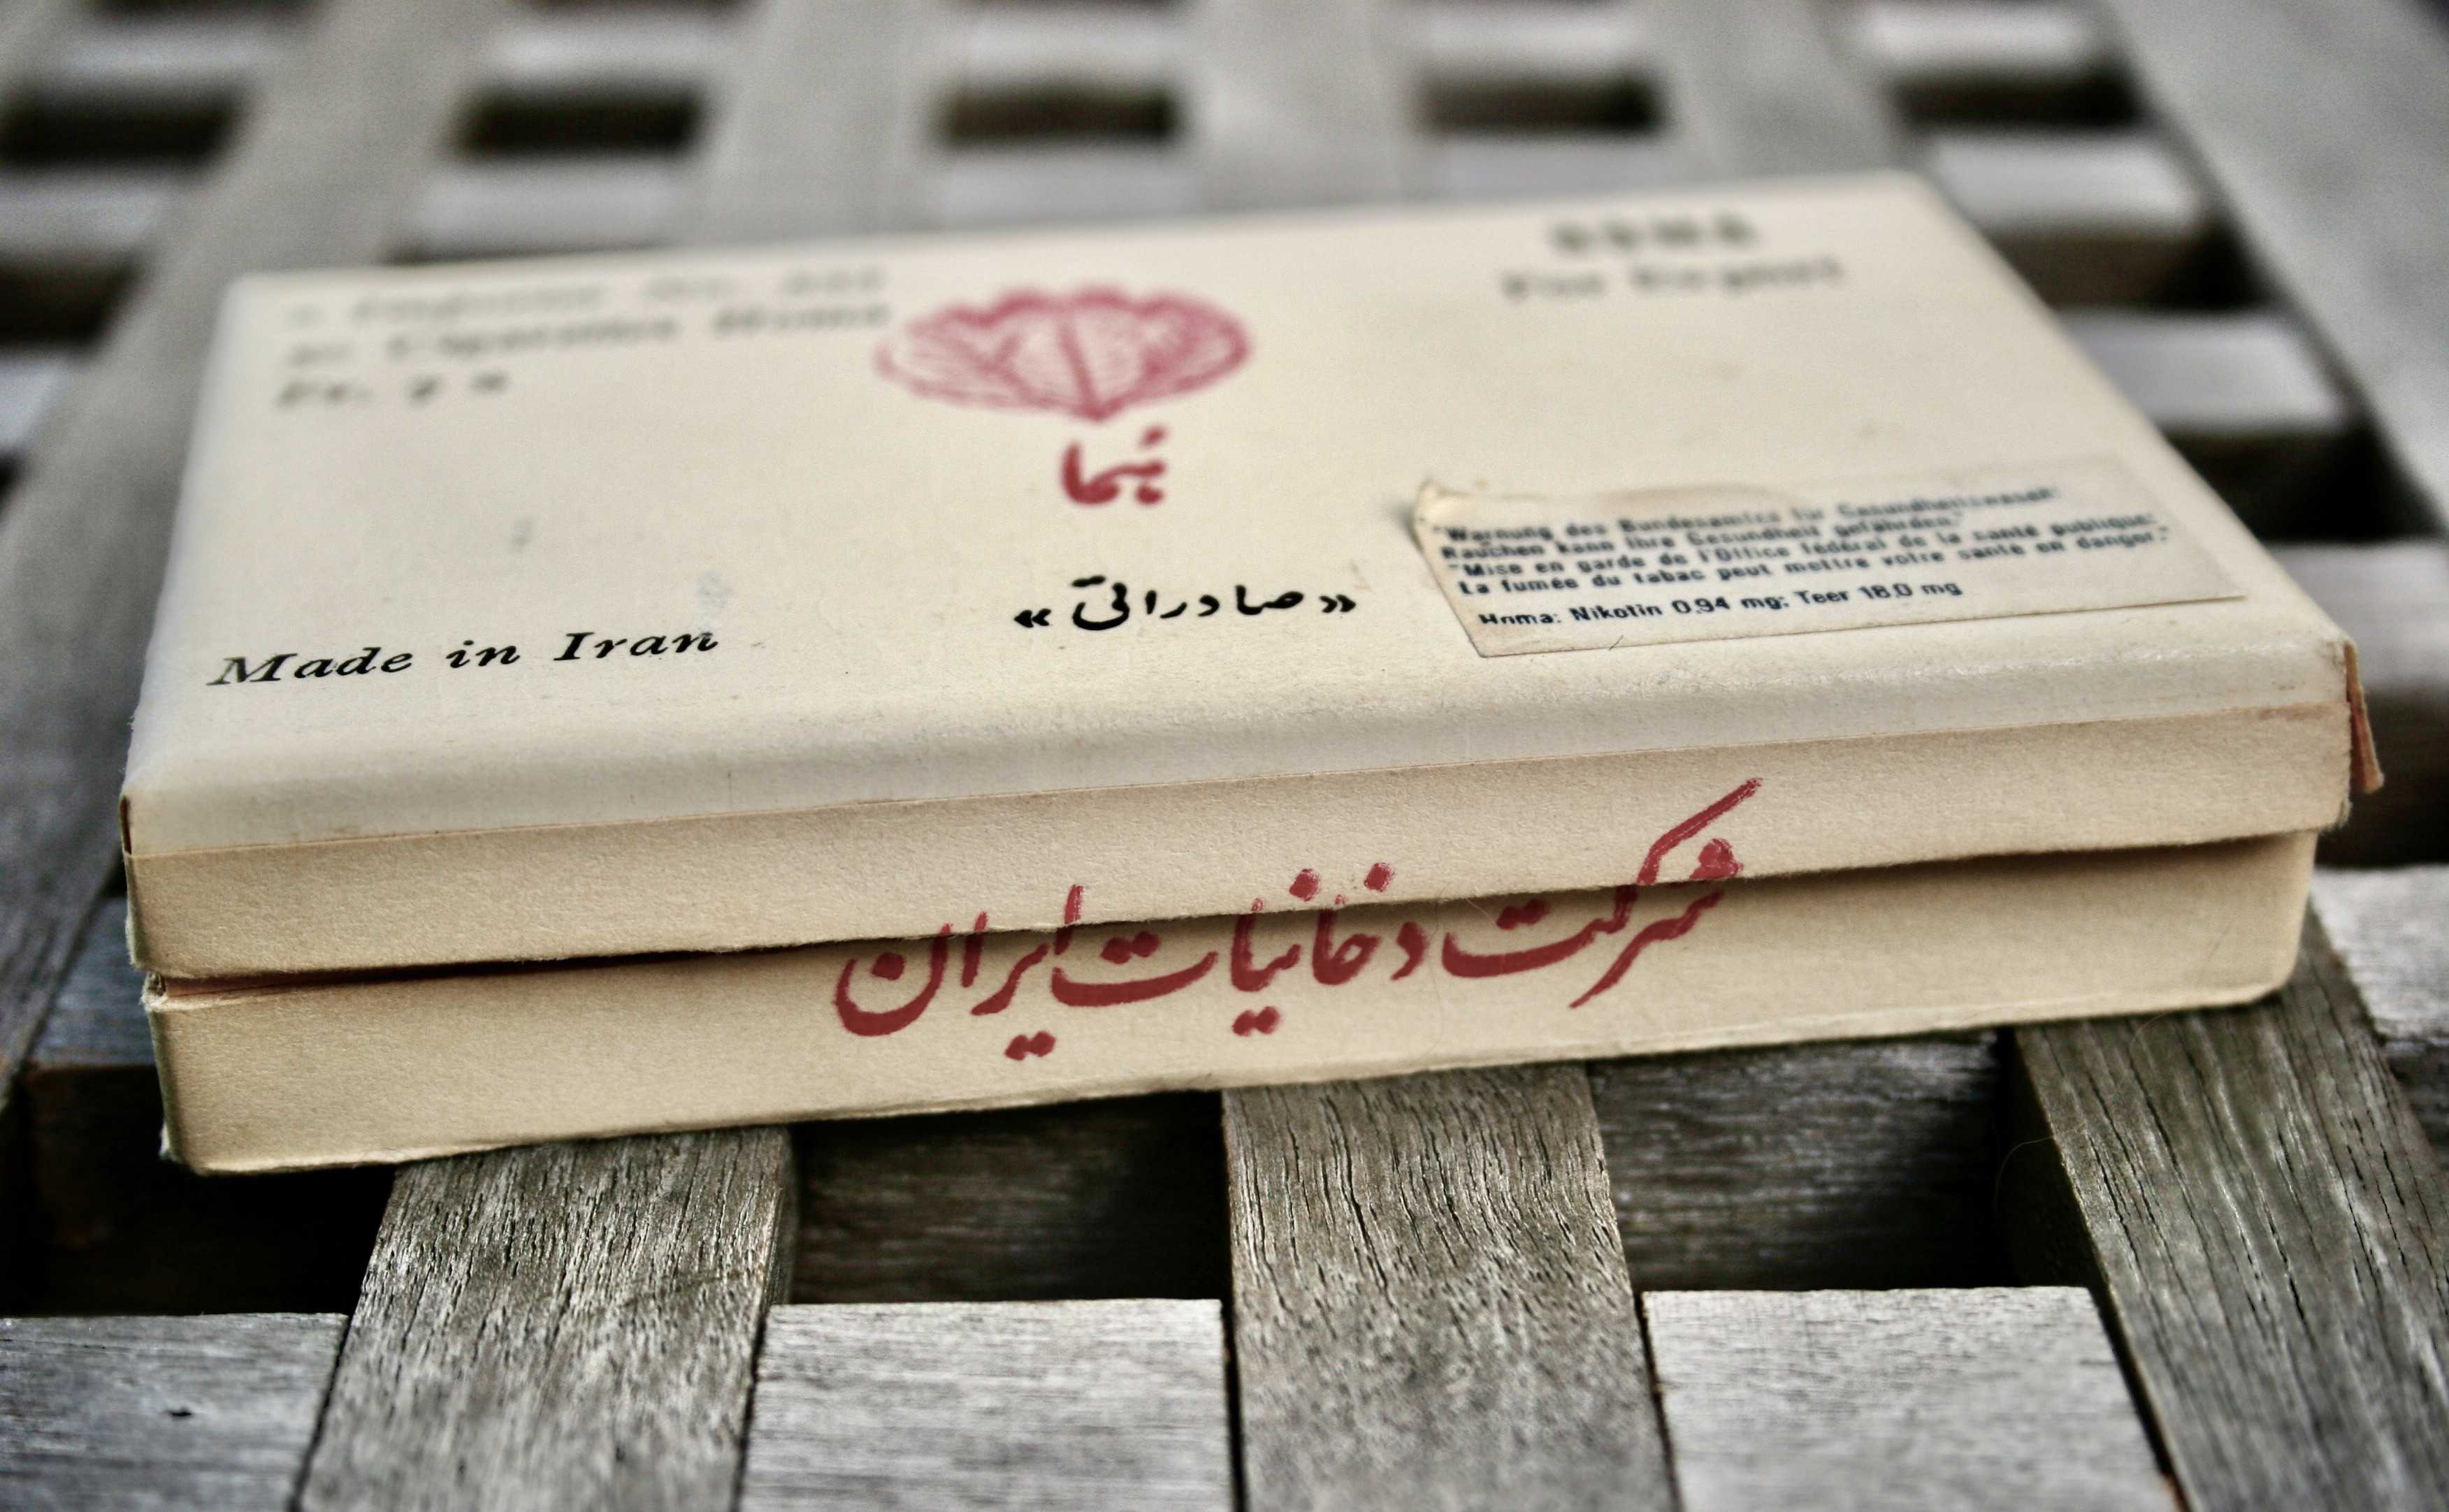 Cigarettes Homa
Fr.
HOMA
For Export
هما
«صادراتی»
Made in Iran
"Warnung des Bundesamtes für Gesundheitswesen:
Rauchen kann Ihre Gesundheit gefährden."
"Mise en garde de l'Office fédéral de la santé publique:
La fumée du tabac peut mettre votre santé en danger."
Homa: Nikotin 0.94 mg; Teer 18.0 mg
شرکت دخانیات ایران